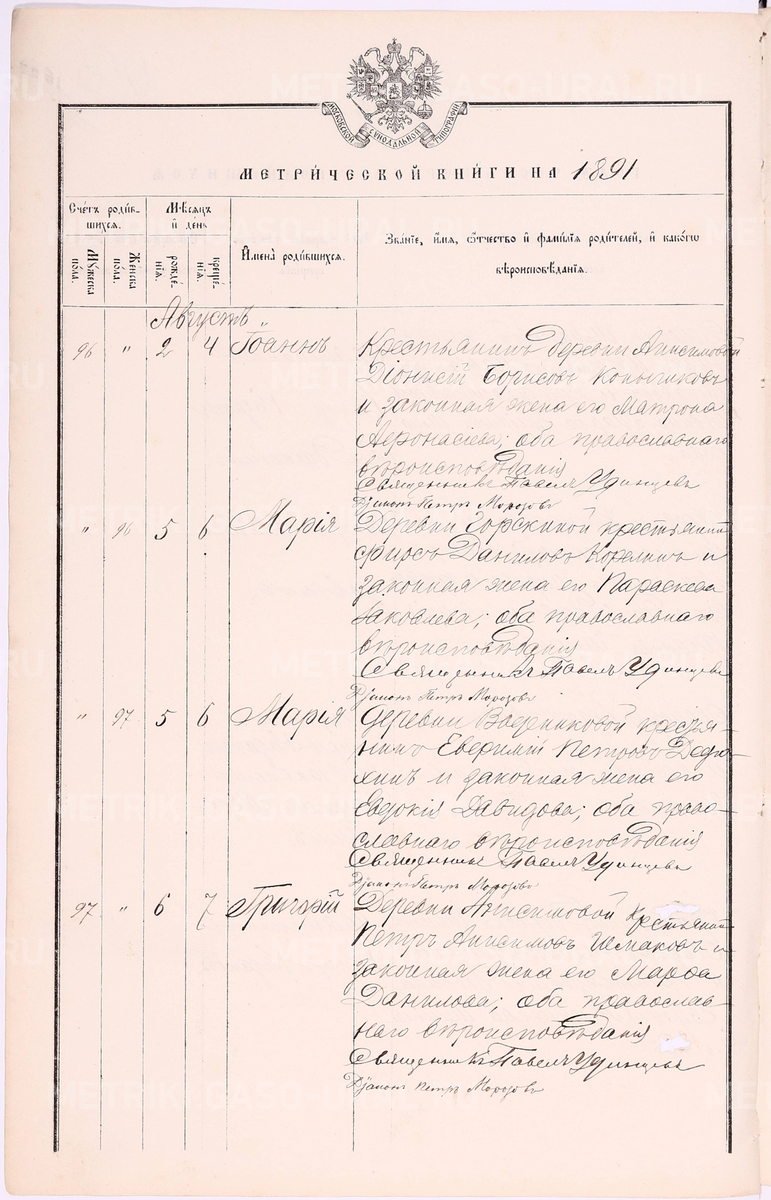 МОСКОВСКОЙ СѴНОДАЛЬНОЙ ТИПОГРАФІИ
МЕТРИ́ЧЕСКОЙ КНИ́ГИ НА 1891
Сче́тъ роди́в-
шихся.
Мѣсѧцъ
и҆ де́нь
И҆мена̀ роди́вшихся.
Зва́нїе, и҆́мѧ, ѻ҆́тчество и҆ фами́лїѧ роди́телей, и҆ како́гѡ
вѣроисповѣ́данїѧ.
Мꙋ́жеска
по́ла.
Же́нска
по́ла.
рожде́-
нїѧ.
креще́-
нїѧ.
Августъ
96 " 2 4 Іоаннъ
Крестьянинъ деревни Анисимовой
Діонисій Борисовъ
и законная жена его Матрона
Афонасіева; оба православнаго
вѣроисповѣданія
Священникъ Павелъ Удинцевъ
Діаконъ Петръ Морозовъ
" 96 5 6 Марія
Деревни Горскиной крестьянинъ
Фирсъ Даниловъ Корелинъ и
законная жена его Параскева
Іаковлева; оба православнаго
вѣроисповѣданія
Священникъ Павелъ Удинцевъ
Діаконъ Петръ Морозовъ
" 97 5 6 Марія
Деревни крестья-
нинъ Евфимій Петровъ Дедю-
хинъ и законная жена его
Евдокія Давидова; оба право-
славнаго вѣроисповѣданія
Священникъ Павелъ Удинцевъ
Діаконъ Петръ Морозовъ
97 " 6 7 Григорій
Деревни Анисимовой крестьянинъ
Петръ Анисимовъ Шмаковъ и
законная жена его Марфа
Данилова; оба православ-
наго вѣроисповѣданія
Священникъ Павелъ Удинцевъ
Діаконъ Петръ Морозовъ